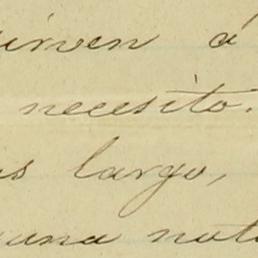 sirven á
necesito.
s largo,
una nota